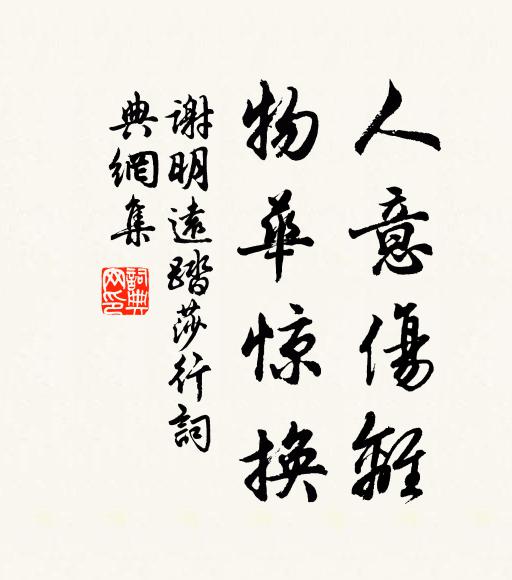 人意傷離
物華惊換
謝明遠踏莎行詞
典網集
詞典
网印